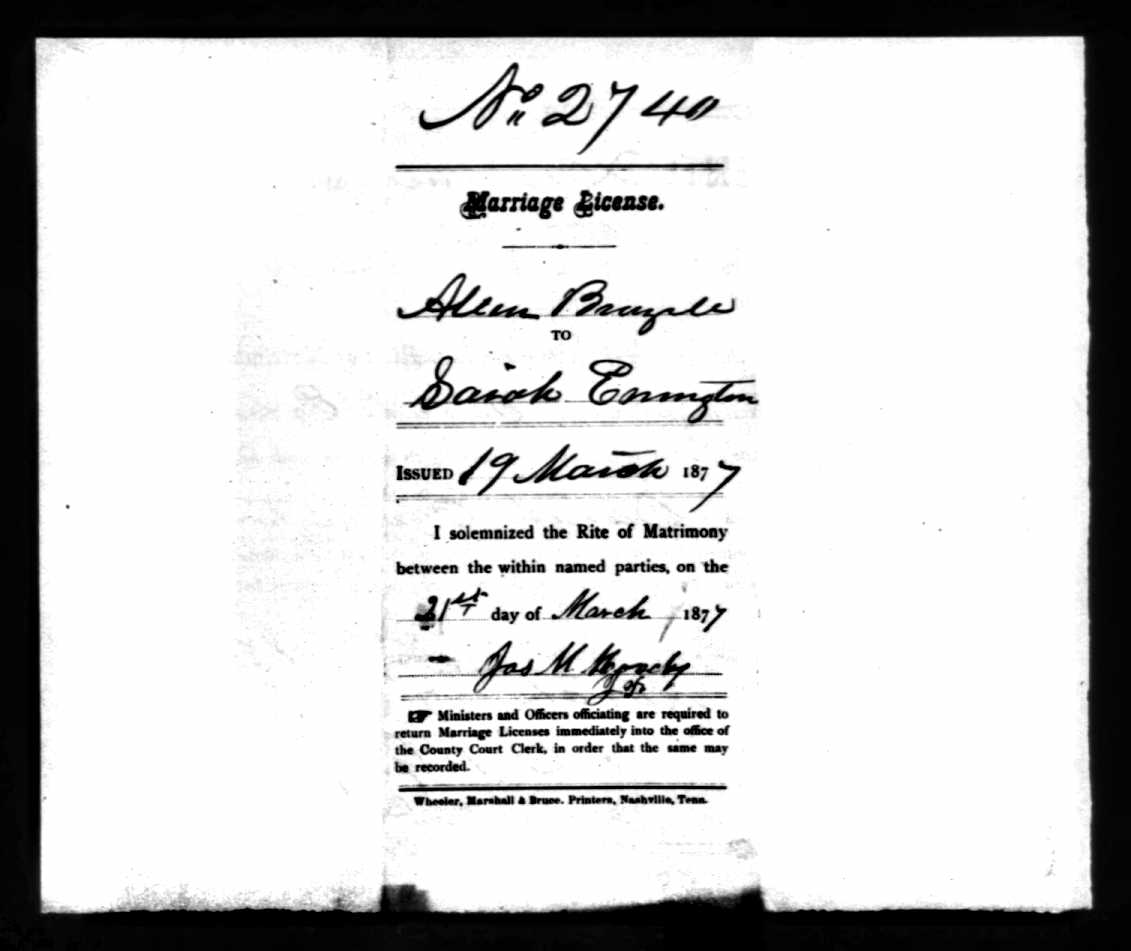 No 2740
Marriage License.
Allen
TO
Sarah
ISSUED 19 March 1877
I solemnized the Rite of Matrimony
between the within named parties, on the
21st day of March 1877
Jas M
☞ Ministers and Officers officiating are required to
return Marriage Licenses immediately into the office of
the County Court Clerk, in order that the same may
be recorded.
Wheeler, Marshall & Bruce. Printers, Nashville, Tenn.